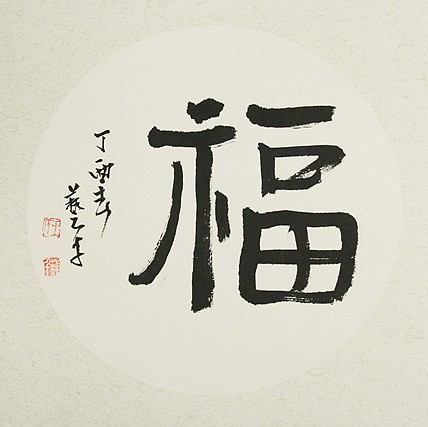 福
丁酉春